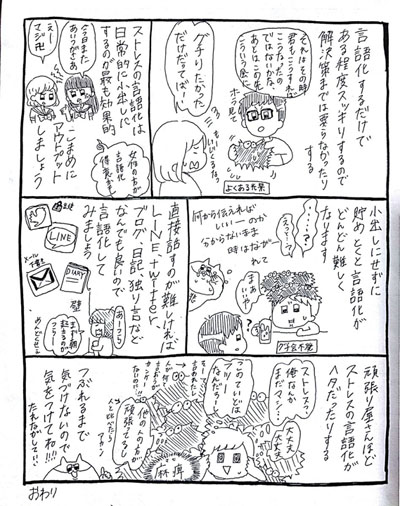 言語化するだけで
ある程度スッキリするので
解決策までは要らなかったり
する
それはその時
君もこうすれば
こうなったの
ではないかな。
あとはこの先
こういう風に
ホラ見て
グチりたかった
だけだってばー!
よくある失策
ストレスの言語化は
日常的に小出しに
するのが最も効果的
今日また
あいつがさぁ
えー
マジ卍
女性の方が
言語化
得意かも
こまめに
アウトプット
しましょう
小出しにせずに
貯めとくと言語化が
どんどん難しく
なります
・・・・・?
えっ・・・?
あれ?
何から伝えれば
いいーのか
分からないまま
時は流れて
グチ会不発
直接話すのが難しければ
LINE、twitter、
ブログ、日記、独り言など
なんでも良いので
言語化して
みましょう
LINE
メール
DIARY
壁
あーつらい
まず朝
起きるのが
つらい
めんどくせー
頑張り屋さんほど
ストレスの言語化が
ヘタだったりする
ストレス?
俺なんか
まだマシ!
大丈夫
大丈夫
このていどは
フツー
なんだろ?
他の人の方が
頑張ってるし
麻痺
つぶれるまで
気付けないので
気をつけてね!!!
おわり